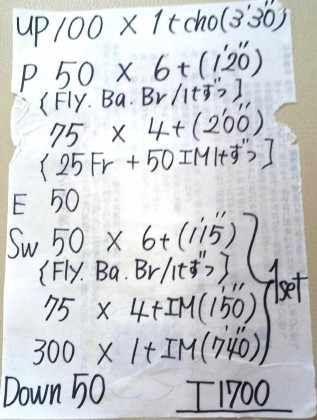 UP 100 × 1t cho (3'30")
P 50 × 6t (1'20")
{Fly. Ba. Br/1tずつ}
75 × 4t (2'00")
{25Fr + 50IM 1tずつ]
E 50
Sw 50 × 6t (1'15")
{Fly. Ba. Br/1tずつ]
75 × 4t IM (1'50")
300 × 1t IM (7'40")
1set
Down 50 T 1700